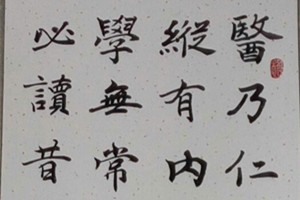 醫乃仁
縱有内
學無常
必讀昔